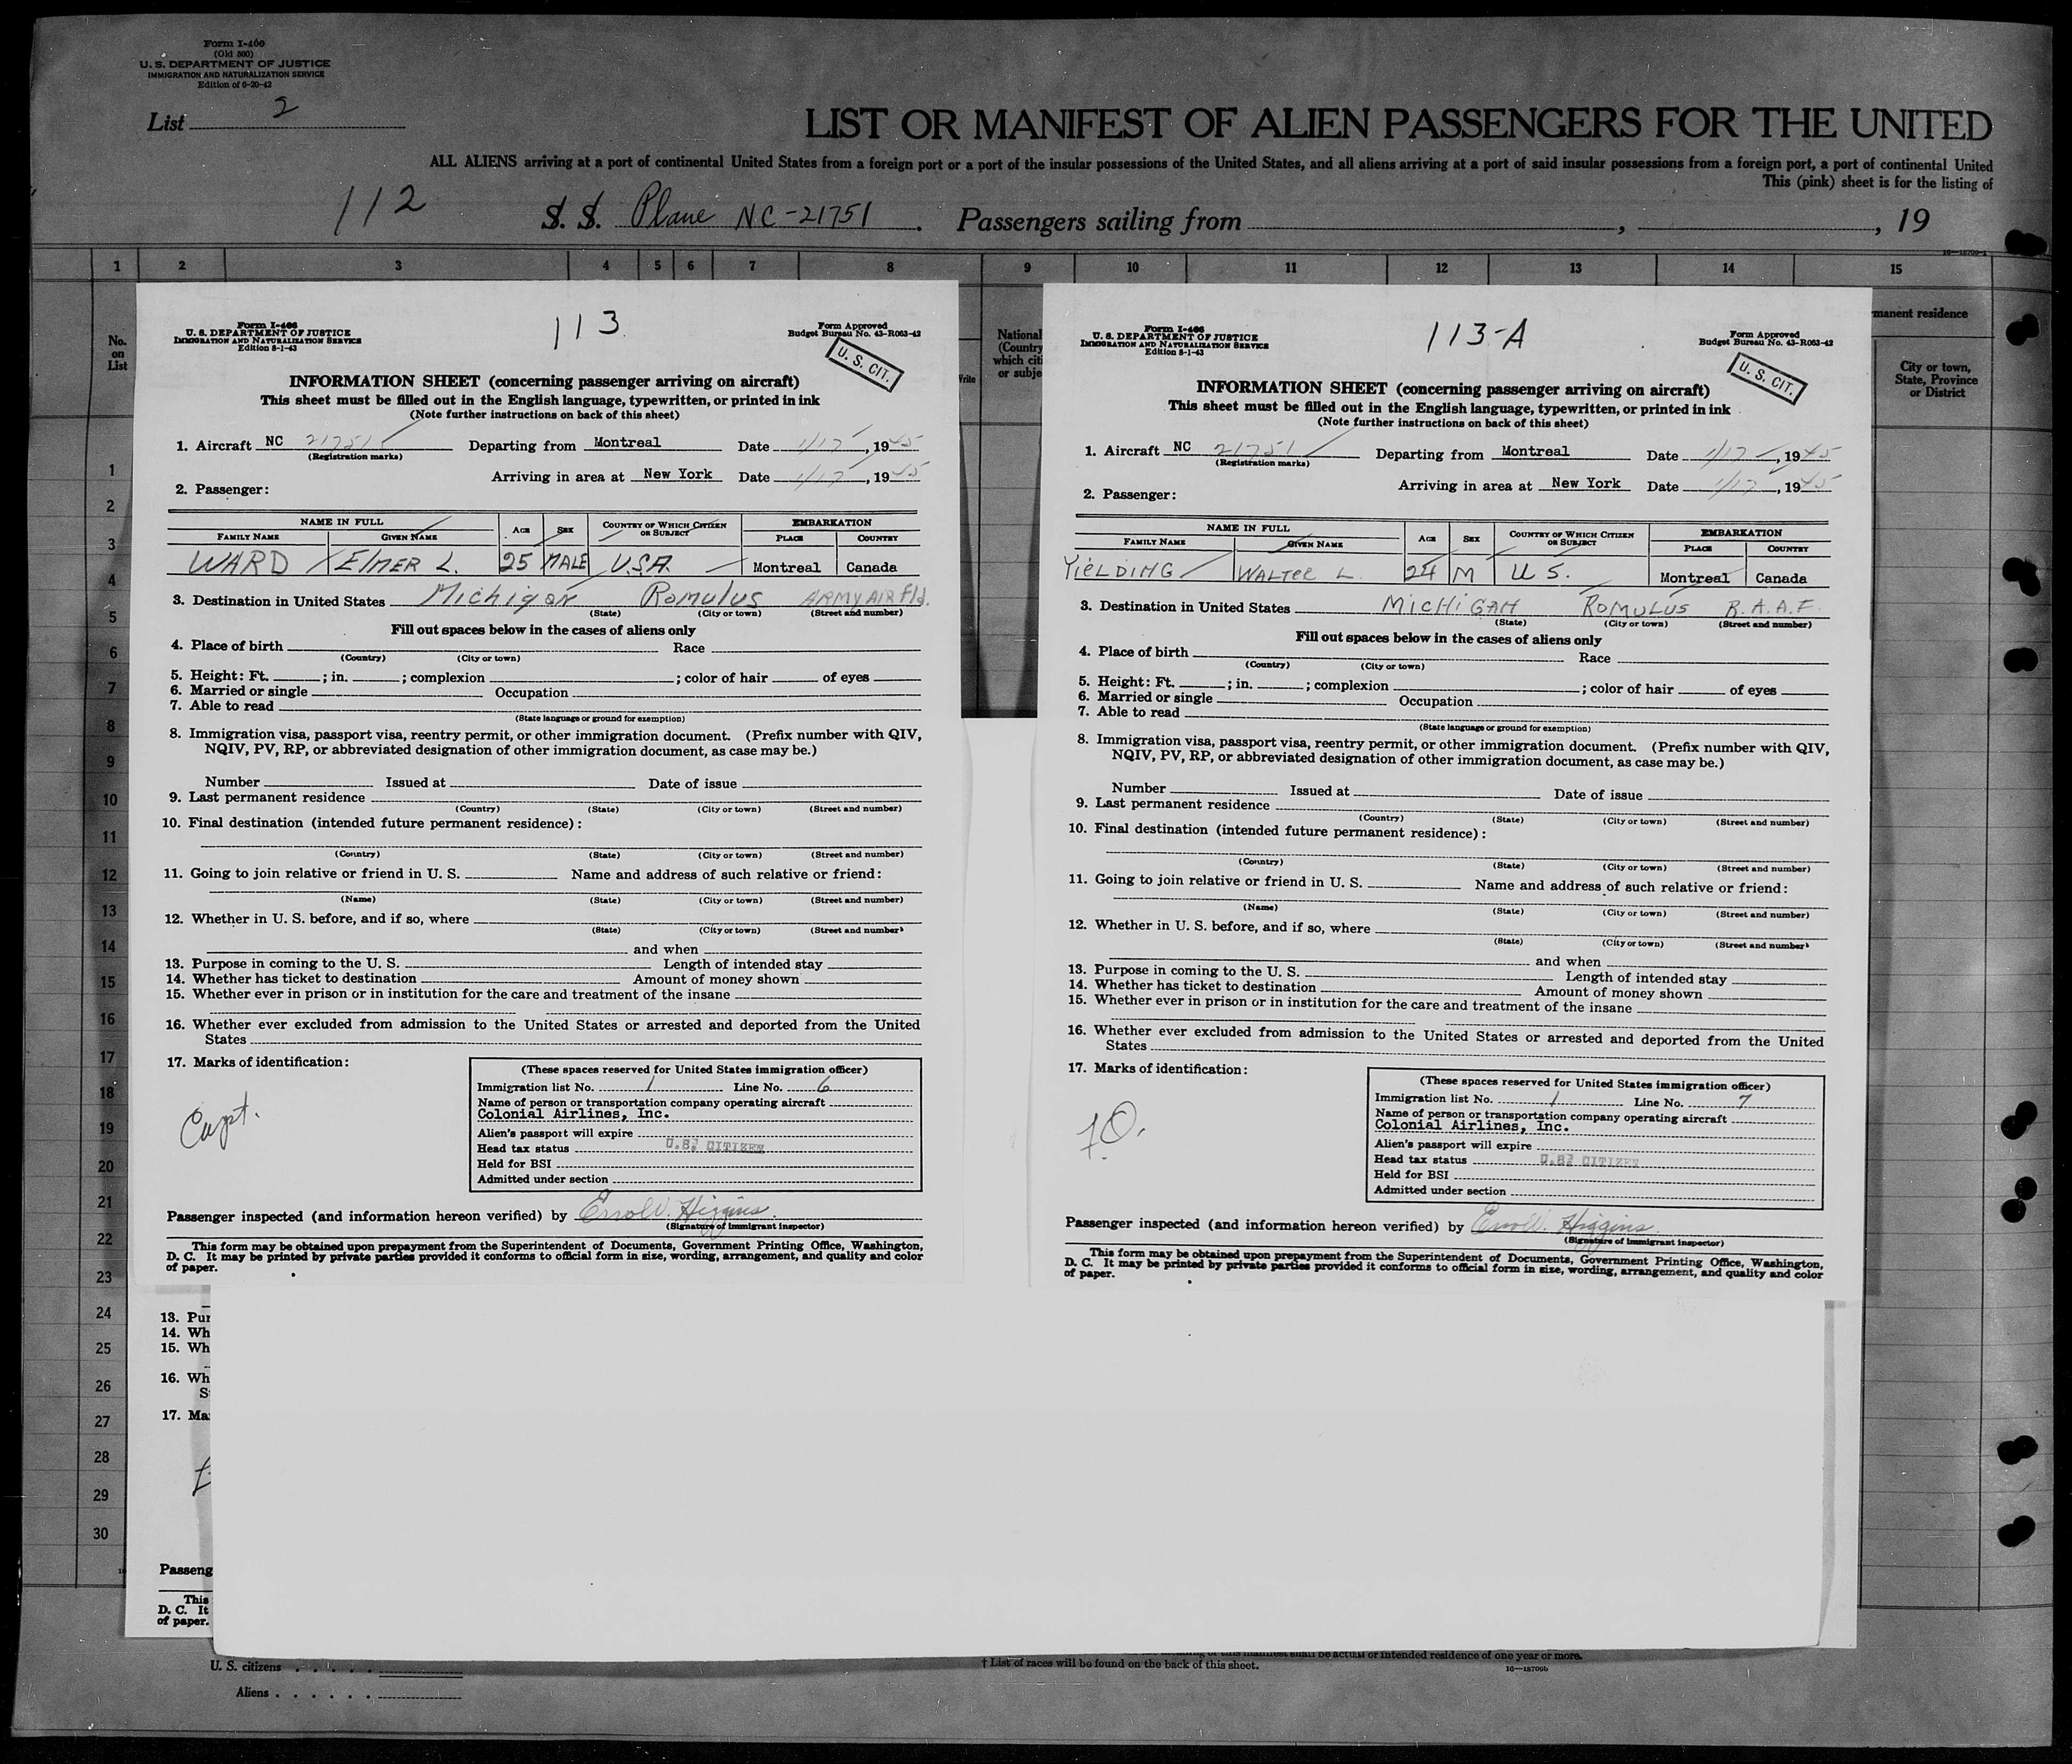 Form I-400
(Old 500)
U. S. DEPARTMENT OF JUSTICE
IMMIGRATION AND NATURALIZATION SERVICE
Edition of 6-20-42
List 2
LIST OR MANIFEST OF ALIEN PASSENGERS FOR THE UNITED
ALL ALIENS arriving at a port of continental United States from a foreign port or a port of the insular possessions of the United States, and all aliens arriving at a port of said insular possessions from a foreign port, a port of continental United
This (pink) sheet is for the listing of
112 S. S. Plane NC-21751. Passengers sailing from , , 19
1 2 3 4 5 6 7 8 9 10 11 12 13 14 15
No.
on
List
National
(Country
which citi
or subje
manent residence
City or town,
State, Province
or District
Form I-466
U. S. DEPARTMENT OF JUSTICE
IMMIGRATION AND NATURALIZATION SERVICE
Edition 8-1-43
113
Form Approved
Budget Bureau No. 43-R063-42
U. S. CIT.
INFORMATION SHEET (concerning passenger arriving on aircraft)
This sheet must be filled out in the English language, typewritten, or printed in ink
(Note further instructions on back of this sheet)
1. Aircraft NC 21751 Departing from Montreal Date 1/17, 1945
(Registration marks)
Arriving in area at New York Date 1/17, 1945
2. Passenger:
NAME IN FULL AGE SEX COUNTRY OF WHICH CITIZEN OR SUBJECT EMBARKATION
FAMILY NAME GIVEN NAME PLACE COUNTRY
WARD ELMER L. 25 MALE U.S.A. Montreal Canada
3. Destination in United States Michigan Romulus ARMY AIR Fld.
(State) (City or town) (Street and number)
Fill out spaces below in the cases of aliens only
4. Place of birth Race
(Country) (City or town)
5. Height: Ft. ; in. ; complexion ; color of hair of eyes
6. Married or single Occupation
7. Able to read
(State language or ground for exemption)
8. Immigration visa, passport visa, reentry permit, or other immigration document. (Prefix number with QIV,
NQIV, PV, RP, or abbreviated designation of other immigration document, as case may be.)
Number Issued at Date of issue
9. Last permanent residence
(Country) (State) (City or town) (Street and number)
10. Final destination (intended future permanent residence):
(Country) (State) (City or town) (Street and number)
11. Going to join relative or friend in U. S. Name and address of such relative or friend:
(Name) (State) (City or town) (Street and number)
12. Whether in U. S. before, and if so, where
(State) (City or town) (Street and number)
and when
13. Purpose in coming to the U. S. Length of intended stay
14. Whether has ticket to destination Amount of money shown
15. Whether ever in prison or in institution for the care and treatment of the insane
16. Whether ever excluded from admission to the United States or arrested and deported from the United
States
17. Marks of identification:
Capt.
(These spaces reserved for United States immigration officer)
Immigration list No. 1 Line No. 6
Name of person or transportation company operating aircraft
Colonial Airlines, Inc.
Alien's passport will expire
Head tax status U.S. CITIZEN
Held for BSI
Admitted under section
Passenger inspected (and information hereon verified) by Errol W. Higgins.
(Signature of immigrant inspector)
This form may be obtained upon prepayment from the Superintendent of Documents, Government Printing Office, Washington,
D. C. It may be printed by private parties provided it conforms to official form in size, wording, arrangement, and quality and color
of paper.
Form I-466
U. S. DEPARTMENT OF JUSTICE
IMMIGRATION AND NATURALIZATION SERVICE
Edition 8-1-43
113-A
Form Approved
Budget Bureau No. 43-R063-42
U. S. CIT.
INFORMATION SHEET (concerning passenger arriving on aircraft)
This sheet must be filled out in the English language, typewritten, or printed in ink
(Note further instructions on back of this sheet)
1. Aircraft NC 21751 Departing from Montreal Date 1/17, 1945
(Registration marks)
Arriving in area at New York Date 1/17, 1945
2. Passenger:
NAME IN FULL AGE SEX COUNTRY OF WHICH CITIZEN OR SUBJECT EMBARKATION
FAMILY NAME GIVEN NAME PLACE COUNTRY
YIELDING WALTER L. 24 M U S. Montreal Canada
3. Destination in United States MICHIGAN ROMULUS R.A.A.F.
(State) (City or town) (Street and number)
Fill out spaces below in the cases of aliens only
4. Place of birth Race
(Country) (City or town)
5. Height: Ft. ; in. ; complexion ; color of hair of eyes
6. Married or single Occupation
7. Able to read
(State language or ground for exemption)
8. Immigration visa, passport visa, reentry permit, or other immigration document. (Prefix number with QIV,
NQIV, PV, RP, or abbreviated designation of other immigration document, as case may be.)
Number Issued at Date of issue
9. Last permanent residence
(Country) (State) (City or town) (Street and number)
10. Final destination (intended future permanent residence):
(Country) (State) (City or town) (Street and number)
11. Going to join relative or friend in U. S. Name and address of such relative or friend:
(Name) (State) (City or town) (Street and number)
12. Whether in U. S. before, and if so, where
(State) (City or town) (Street and number)
and when
13. Purpose in coming to the U. S. Length of intended stay
14. Whether has ticket to destination Amount of money shown
15. Whether ever in prison or in institution for the care and treatment of the insane
16. Whether ever excluded from admission to the United States or arrested and deported from the United
States
17. Marks of identification:
F.O.
(These spaces reserved for United States immigration officer)
Immigration list No. 1 Line No. 7
Name of person or transportation company operating aircraft
Colonial Airlines, Inc.
Alien's passport will expire
Head tax status U.S. CITIZEN
Held for BSI
Admitted under section
Passenger inspected (and information hereon verified) by Errol W. Higgins.
(Signature of immigrant inspector)
This form may be obtained upon prepayment from the Superintendent of Documents, Government Printing Office, Washington,
D. C. It may be printed by private parties provided it conforms to official form in size, wording, arrangement, and quality and color
of paper.
1
2
3
4
5
6
7
8
9
10
11
12
13
14
15
16
17
18
19
20
21
22
23
24
25
26
27
28
29
30
13. Pur
14. Wh
15. Wh
16. Wh
S
17. Ma
Passeng
This
D. C. It
of paper.
U. S. citizens
Aliens
of this manifest shall be actual or intended residence of one year or more.
† List of races will be found on the back of this sheet.
16—18700b